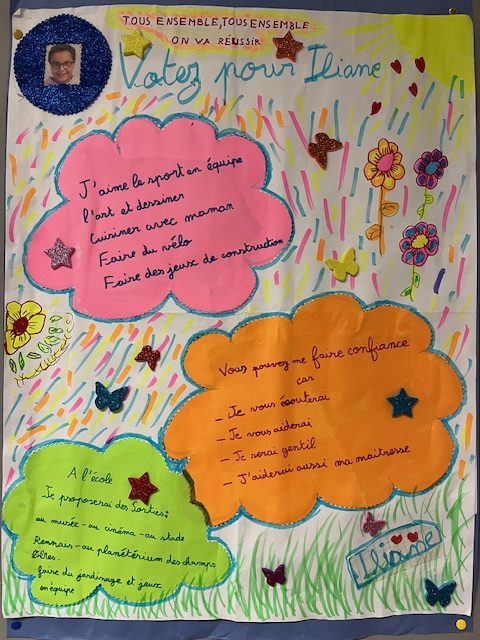 TOUS ENSEMBLE, TOUS ENSEMBLE
ON VA RÉUSSIR
Votez pour Iliane
J'aime le sport en équipe
l'art et dessiner
Cuisiner avec maman
Faire du vélo
Faire des jeux de construction
Vous pouvez me faire confiance
car
- Je vous écouterai
- Je vous aiderai
- Je serai gentil
- J'aiderai aussi ma maitresse
A l'école
Je proposerai des sorties:
au musée - au cinéma - au stade
Rennais - au planétérium des champs
libres.
faire du jardinage et jeux
en équipe
Iliane